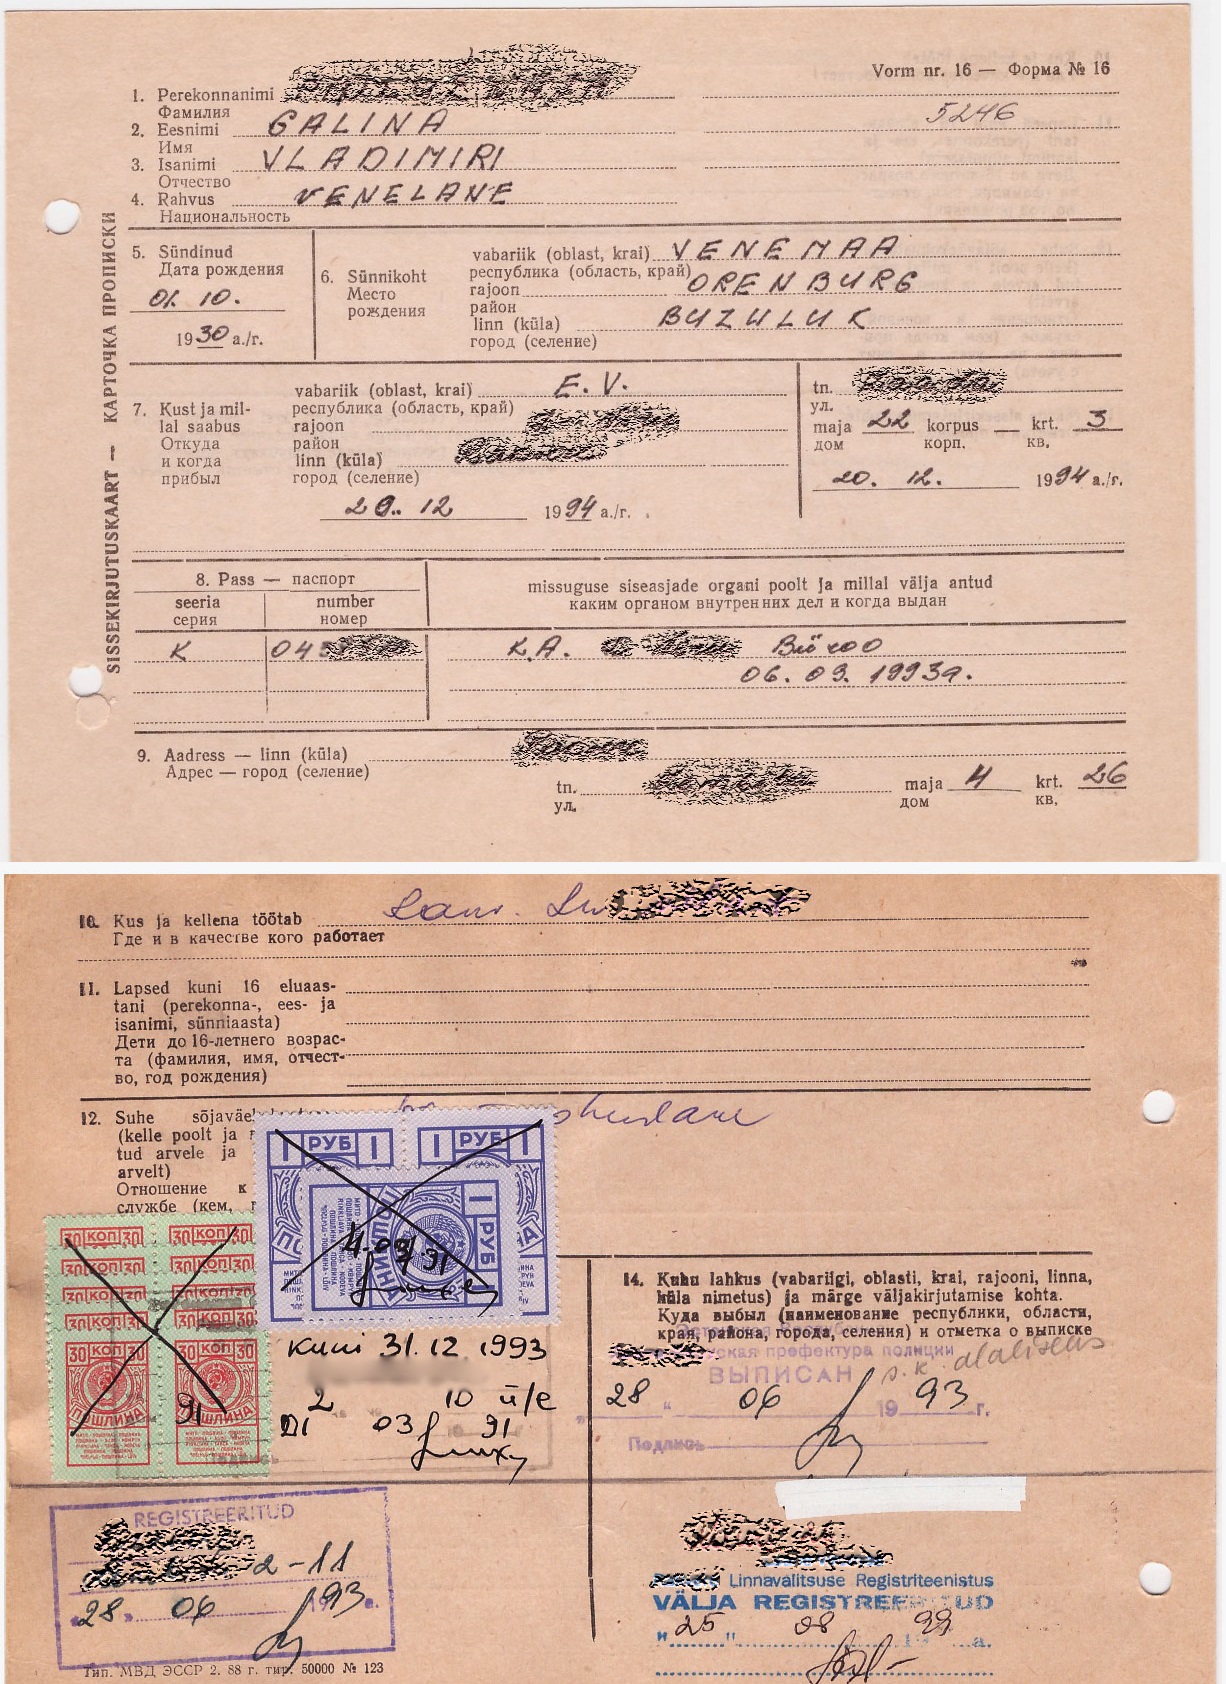 Vorm nr. 16 — Форма № 16
5246
1. Perekonnanimi
Фамилия
2. Eesnimi GALINA
Имя
3. Isanimi VLADIMIRI
Отчество
4. Rahvus VENELANE
Национальность
SISSEKIRJUTUSKAART — КАРТОЧКА ПРОПИСКИ
5. Sündinud
Дата рождения
01. 10.
1930 a./г.
6. Sünnikoht
Место
рождения
vabariik (oblast, krai) VENEMAA
республика (область, край)
rajoon ORENBURG
район
linn (küla) BUZULUK
город (селение)
7. Kust ja mil-
lal saabus
Откуда
и когда
прибыл
vabariik (oblast, krai) E.V.
республика (область, край)
rajoon
район
linn (küla)
город (селение)
20. 12 1994 a./г.
tn.
ул.
maja 22 korpus krt. 3
дом корп. кв.
20. 12. 1994 a./г.
8. Pass — паспорт
seeria number
серия номер
missuguse siseasjade organi poolt ja millal välja antud
каким органом внутренних дел и когда выдан
K 04 K.A. Büroo
06. 09. 1993a.
9. Aadress — linn (küla)
Адрес — город (селение)
tn. maja 4 krt. 26
ул. дом кв.
10. Kus ja kellena töötab
Где и в качестве кого работает
11. Lapsed kuni 16 eluaas-
tani (perekonna-, ees- ja
isanimi, sünniaasta)
Дети до 16-летнего возрас-
та (фамилия, имя, отчест-
во, год рождения)
12. Suhe
(kelle poolt ja
tud arvele ja
arvelt)
Отношение к
службе (кем,
1 РУБ 1 1 РУБ 1
1 РУБ
ПОШЛИНА
4.03.91
30 КОП 30 30 КОП 30
30 КОП 30 30 КОП 30
30 КОП 30 30 КОП 30
30 КОП 30 30 КОП 30
30 КОП 30 30 КОП 30
ПОШЛИНА ПОШЛИНА
91
kuni 31.12.1993
2 10 ü/e
01 03 91
14. Kuhu lahkus (vabariigi, oblasti, krai, rajooni, linna,
küla nimetus) ja märge väljakirjutamise kohta.
Куда выбыл (наименование республики, области,
края, района, города, селения) и отметка о выписке
префектура полиции
ВЫПИСАН
28 06 1993 г.
Подпись
REGISTREERITUD
2-11
28. 06 1993 a.
Linnavalitsuse Registriteenistus
VÄLJA REGISTREERITUD
"25" 08 1999 a.
Тип. МВД ЭССР 2. 88 г. тир. 50000 № 123